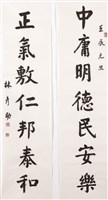 中庸明德民安樂
正氣敷仁邦奉和